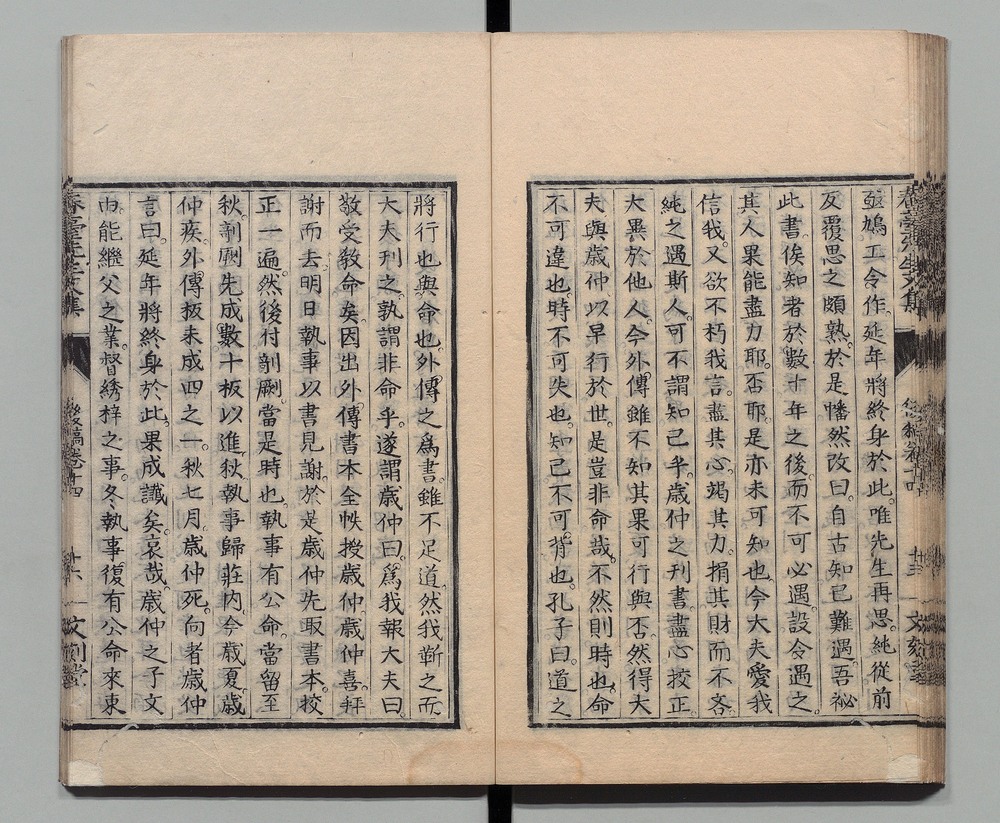 鳩工令作。延年將終身於此。唯先生再思。純從前
反覆思之頗熟。於是幡然改曰。自古知己難遇。吾祕
此書。俟知者於數十年之後而不可必遇。設令遇之。
其人果能盡力耶。否耶。是亦未可知也。今大夫愛我
信我。又欲不朽我言。盡其心。竭其力。捐其財而不吝。
純之遇斯人。可不謂知己乎。歲仲之刊書。盡心挍正。
大異於他人。今外傳雖不知其果可行與否。然得大
夫與歲仲以早行於世。是豈非命哉。不然則時也。命
不可違也。時不可失也。知己不可背也。孔子曰。道之
將行也與命也。外傳之爲書。雖不足道。然我靳之而
大夫刊之。孰謂非命乎。遂謂歲仲曰。爲我報大夫曰。
敬受敎命矣。因出外傳書本全帙授歲仲。歲仲喜拜
謝而去。明日執事以書見謝。於是歲仲先取書本。挍
正一遍。然後付剞劂。當是時也。執事有公命。當留至
秋。剞劂先成數十板以進。秋執事歸莊內。今歲夏。歲
仲疾。外傳板未成四之一。秋七月歲仲死。向者歲仲
言曰。延年將終身於此。果成讖矣。哀哉。歲仲之子文
由能繼父之業。督繡梓之事。冬執事復有公命來東
春臺先生文集
後稿卷十四
文刻堂